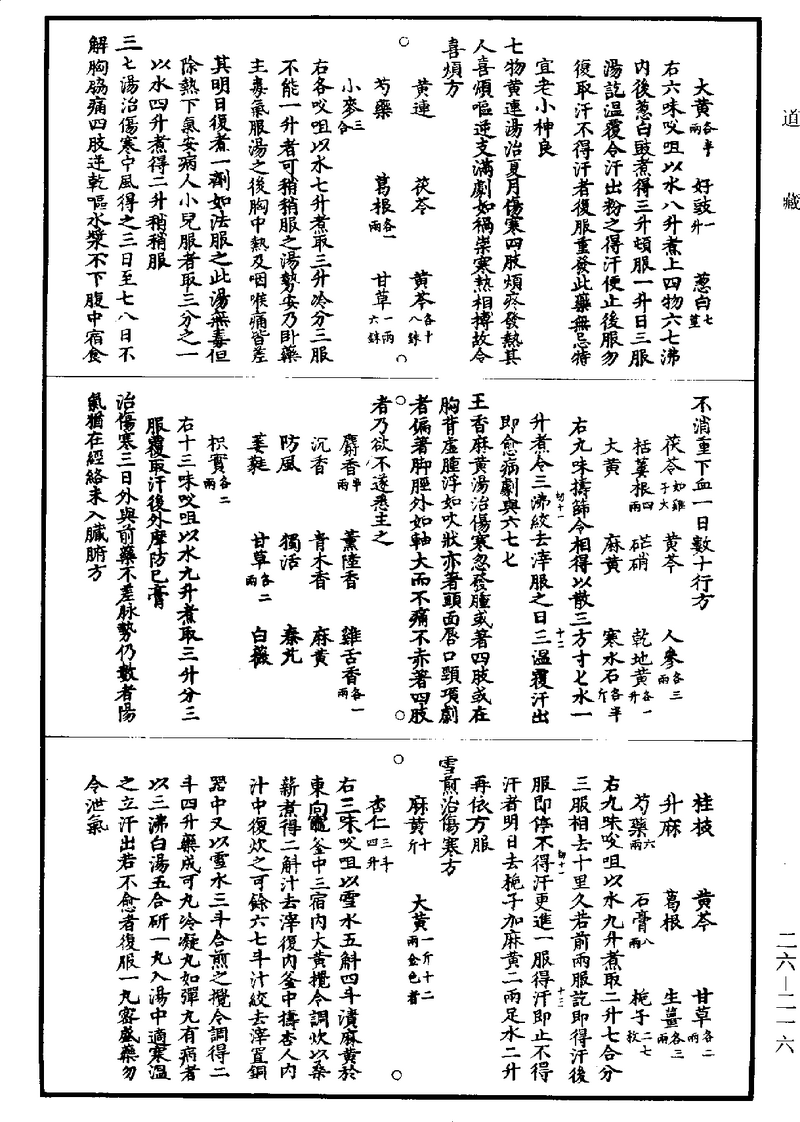 道藏
大黃各半兩 好豉一升 葱白七莖
右六味㕮咀以水八升煮上四物六七沸
內後葱白豉煮得三升頓服一升日三服
湯訖温覆令汗出粉之得汗便止後服勿
復取汗不得汗者復服重發此藥無忌特
宜老小神良
七物黃連湯治夏月傷寒四肢煩疼發熱其
人喜煩嘔逆支滿劇如禍祟寒熱相搏故令
喜煩方
黃連 茯苓 黃芩各十八銖
芍藥 葛根各一兩 甘草一兩六銖
小麥三合
右各㕮咀以水七升煮取三升冷分三服
不能一升者可稍稍服之湯勢安乃卧藥
主毒氣服湯之後胸中熱及咽喉痛皆差
其明日復煮一劑如法服之此湯無毒但
除熱下氣安病人小兒服者取三分之一
以水四升煮得二升稍稍服
三七湯治傷寒中風得之三日至七八日不
解胸脇痛四肢逆乾嘔水漿不下腹中宿食
不消重下血一日數十行方
茯苓如雞子大 黃芩 人參各三兩
栝蔞根四兩 硭硝 乾地黃各一升
大黃 麻黃 寒水石各半斤
右九味擣篩令相得以散三方寸匕水一
升煮令三沸絞去滓服之日三温覆汗出
即愈病劇與六七匕
王香麻黃湯治傷寒忽發腫或著四肢或在
胸背虛腫浮如吹狀亦著頭面唇口頸項劇
者偏著脚脛外如軸大而不痛不赤著四肢
者乃欲不遂悉主之
麝香半兩 薰陸香 雞舌香各一兩
沉香 青木香 麻黃
防風 獨活 秦艽
萎蕤 甘草各二兩 白薇
枳實各二兩
右十三味㕮咀以水九升煮取三升分三
服覆取汗後外摩防已膏
治傷寒三日外與前藥不差脉勢仍數者陽
氣猶在經絡未入臟腑方
桂枝 黃芩 甘草各二兩
升麻 葛根 生薑各三兩
芍藥六兩 石膏八兩 梔子二七枚
右九味㕮咀以水九升煮取二升七合分
三服相去十里久若前兩服訖即得汗後
服即停不得汗更進一服得汗即止不得
汗者明日去梔子加麻黃二兩足水二升
再依方服
雪煎治傷寒方
麻黃十斤 大黃一斤十二兩金色者
杏仁三斗四升
右三味㕮咀以雪水五斛四斗漬麻黃於
東向竈釜中三宿內大黃攪令調炊以桑
薪煮得二斛汁去滓復內釜中擣杏人內
汁中復炊之可餘六七斗汁絞去滓置銅
器中又以雪水三斗合煎之攪令調得二
斗四升藥成可丸冷凝丸如彈丸有病者
以三沸白湯五合研一丸入湯中適寒温
之立汗出若不愈者復服一丸密盛藥勿
令泄氣
二六—二一六